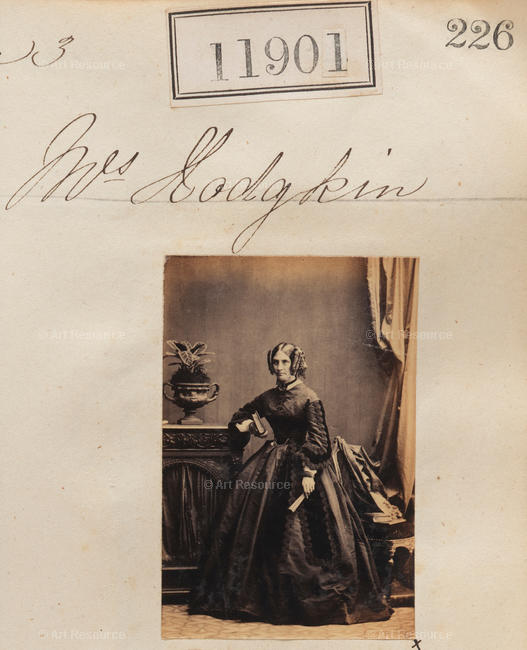 11901
226
3
Mrs Hodgkin
x
© Art Resource
© Art Resource
© Art Resource
© Art Resource
© Art Resource
© Art Resource
© Art Resource
© Art Resource
© Art Resource